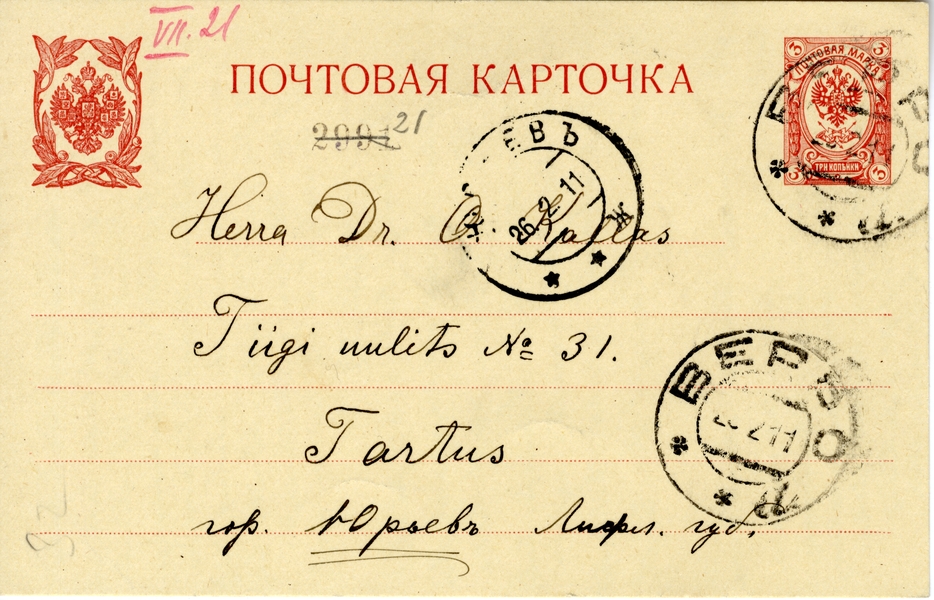 VII. 21
ПОЧТОВАЯ КАРТОЧКА
ПОЧТОВАЯ МАРКА
3 3
3 3
ТРИ КОПѢЙКИ
2991 21
ЕВЪ
26.2-11
Herra Dr. O. Kallas
Tiigi uulits № 31.
ВЕР
Tartus
гор. Юрьевъ Лифл. губ.